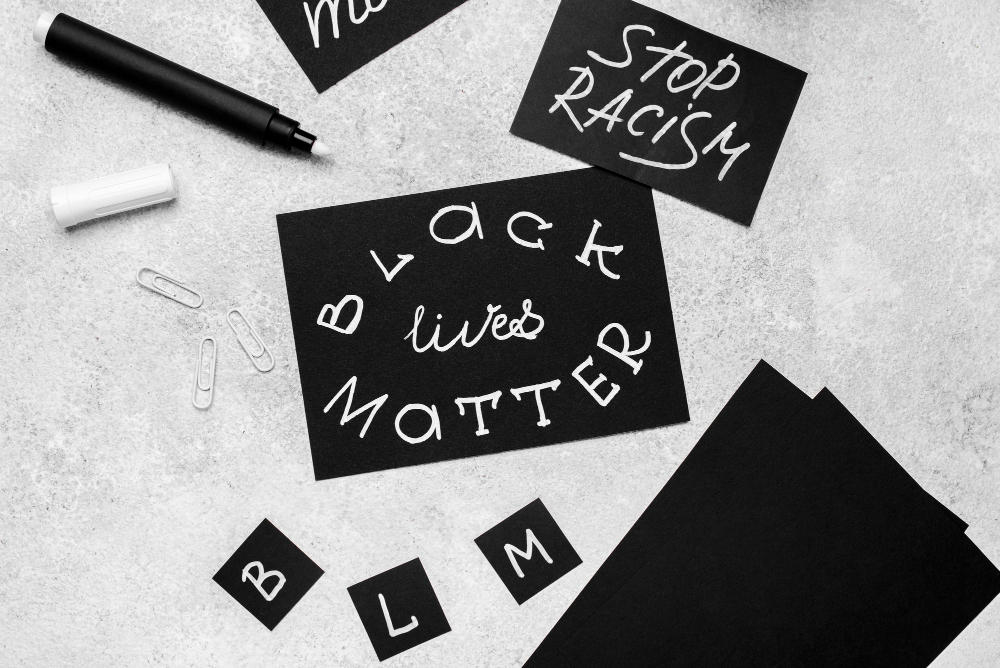 STOP
RACISM
BLaCK
lives
MaTTER
B L M